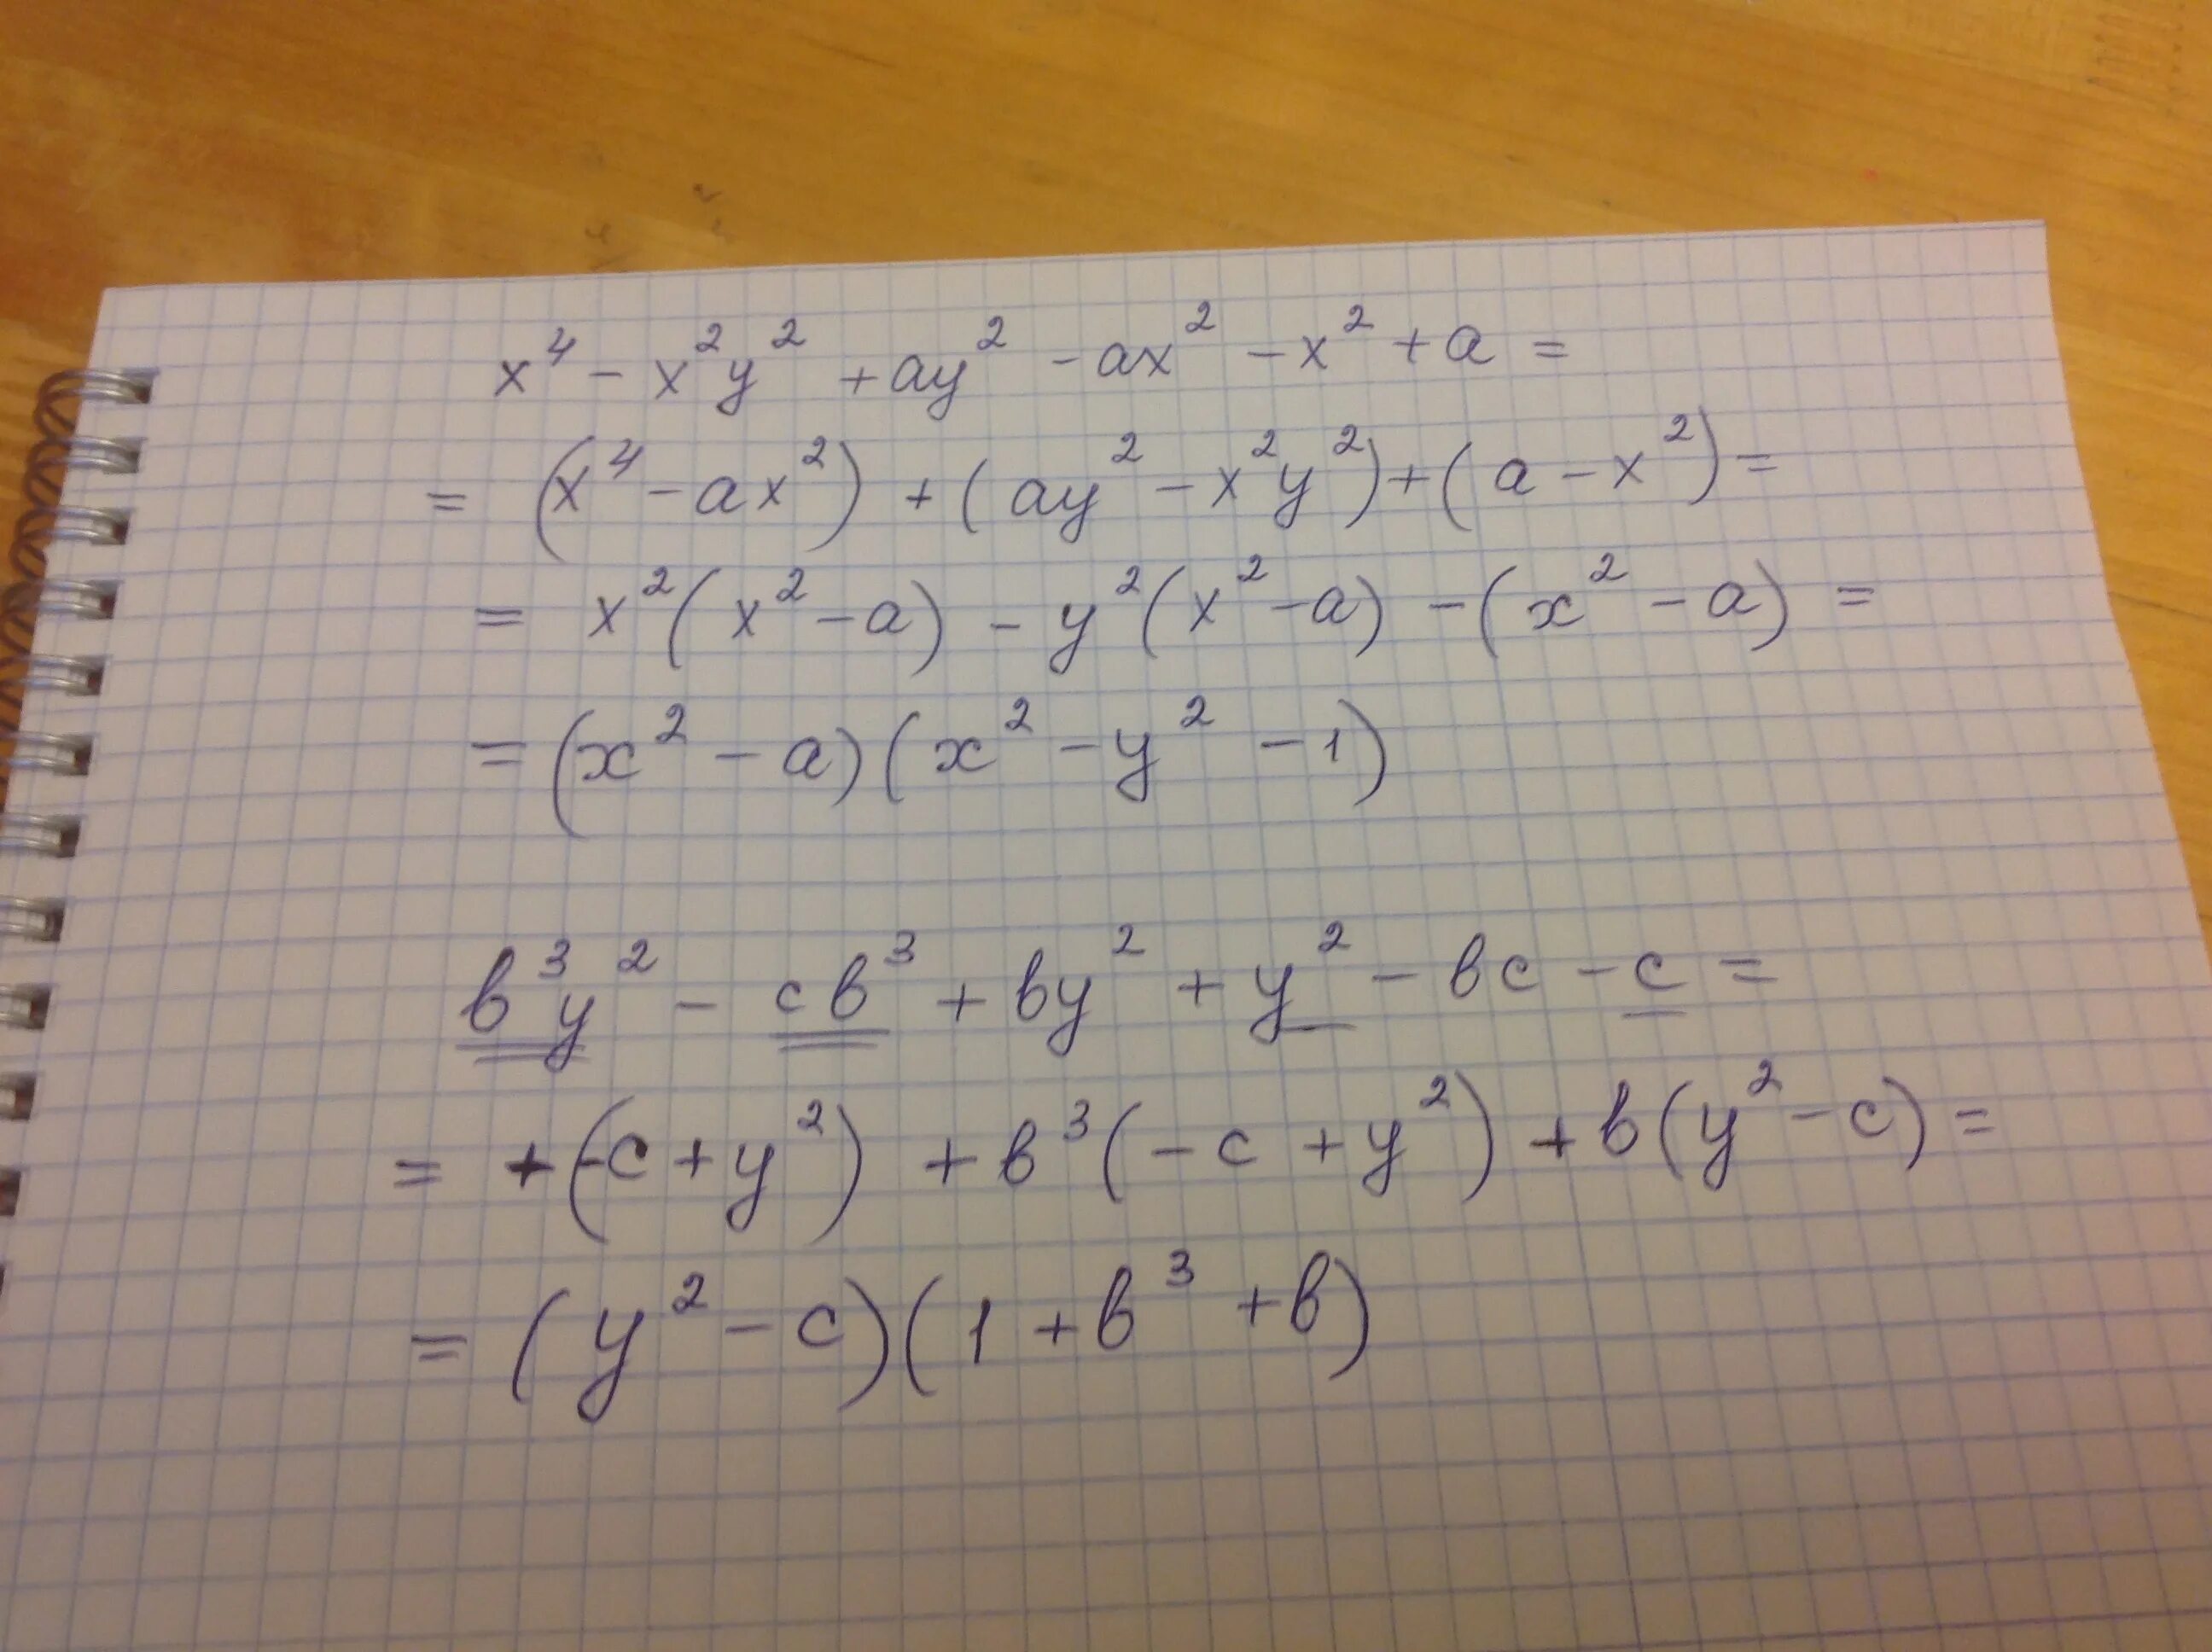 x⁴ - x²y² + ay² - ax² - x² + a =
= (x⁴ - ax²) + (ay² - x²y²) + (a - x²) =
= x²(x² - a) - y²(x² - a) - (x² - a) =
= (x² - a)(x² - y² - 1)
b³y² - cb³ + by² + y² - bc - c =
= + (-c + y²) + b³(-c + y²) + b(y² - c) =
= (y² - c)(1 + b³ + b)